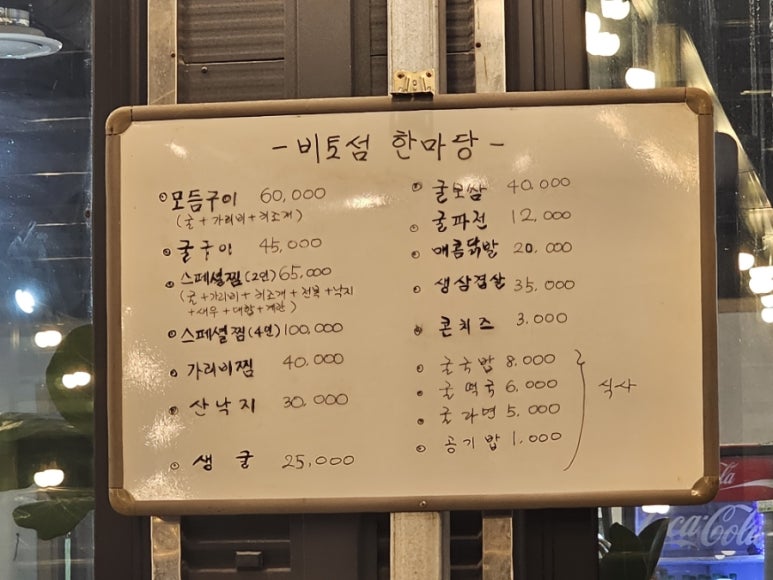 - 비토섬 한마당 -
모듬구이 60,000
(굴 + 가리비 + 키조개)
굴구이 45,000
스페셜찜(2인) 65,000
(굴 + 가리비 + 키조개 + 전복 + 낙지
+ 새우 + 대합 + 계란)
스페셜찜(4인) 100,000
가리비찜 40,000
산낙지 30,000
생굴 25,000
굴보쌈 40,000
굴파전 12,000
매콤닭발 20,000
생삼겹살 35,000
콘치즈 3,000
굴국밥 8,000
굴떡국 6,000
굴라면 5,000
공기밥 1,000
식사
Coca-Cola